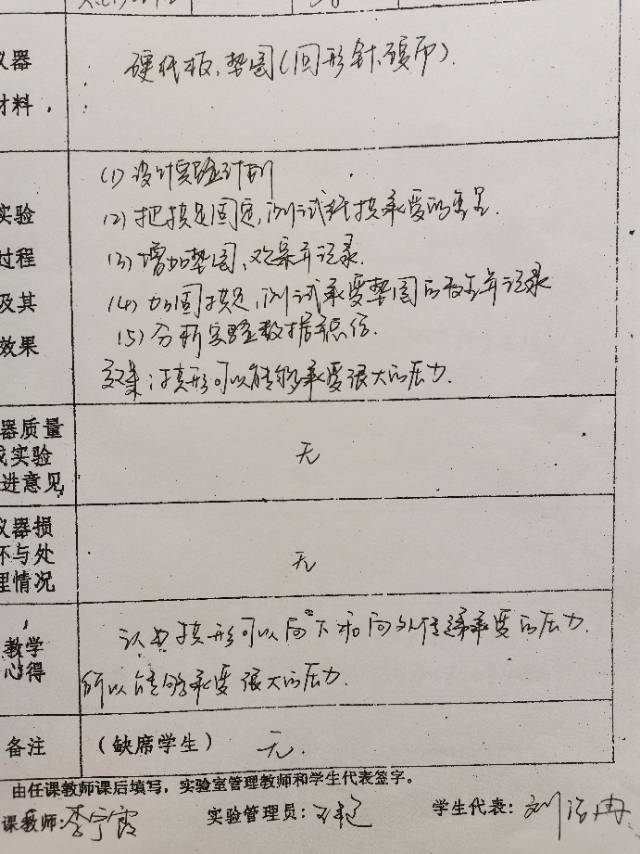 仪器
硬纸板、垫圈(回形针、硬币).
材料
(1) 设计实验计划
实验
(2) 把拱足固定,测试纸拱承受的重量.
过程
(3) 增加垫圈,观察并记录.
及其
(4) 加固拱足,测试承受垫圈的数量并记录
效果
(5) 分析实验数据
效果:拱形可以能够承受很大的压力.
器质量
或实验
进意见
无
仪器损
坏与处
理情况
无
教学
心得
认为拱形可以向下和向外传递承受的压力.
所以能够承受很大的压力.
备注 (缺席学生) 无.
由任课教师课后填写,实验室管理教师和学生代表签字。
课教师:李宁霞 实验管理员: 学生代表:刘